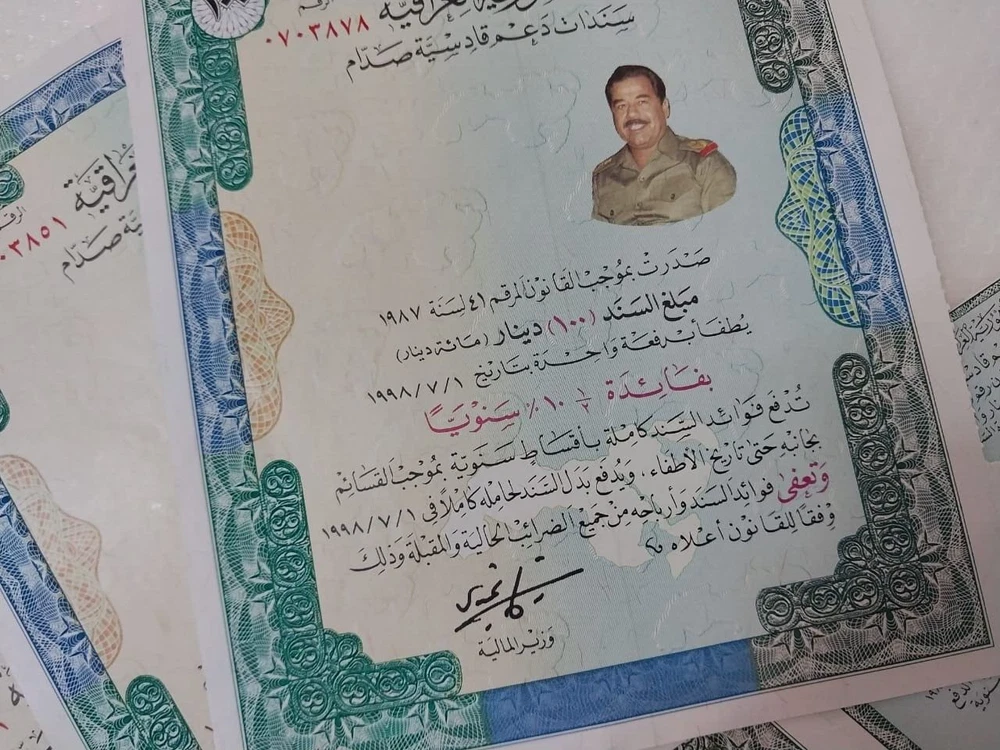 الرقم
٠٧٠٣٨٧٨
سندات دعم قادسية صدام
صدرت بموجب القانون المرقم ٤١ لسنة ١٩٨٧
مبلغ السند (١٠٠) دينار (مائة دينار)
يُطفأ بدفعة واحدة بتاريخ ١٩٩٨/٧/١
بفائدة ١/٢ ١٠٪ سنوياً
تُدفع فوائد السند كاملة بأقساط سنوية بموجب القسائم
بجانبه حتى تاريخ الأطفاء، ويُدفع بدل السند لحامله كاملاً في ١٩٩٨/٧/١
وتعفى فوائد السند وأرباحه من جميع الضرائب الحالية والمقبلة وذلك
وفقاً للقانون أعلاه
وزير المالية
الرقم
٠٣٨٥١
صدام